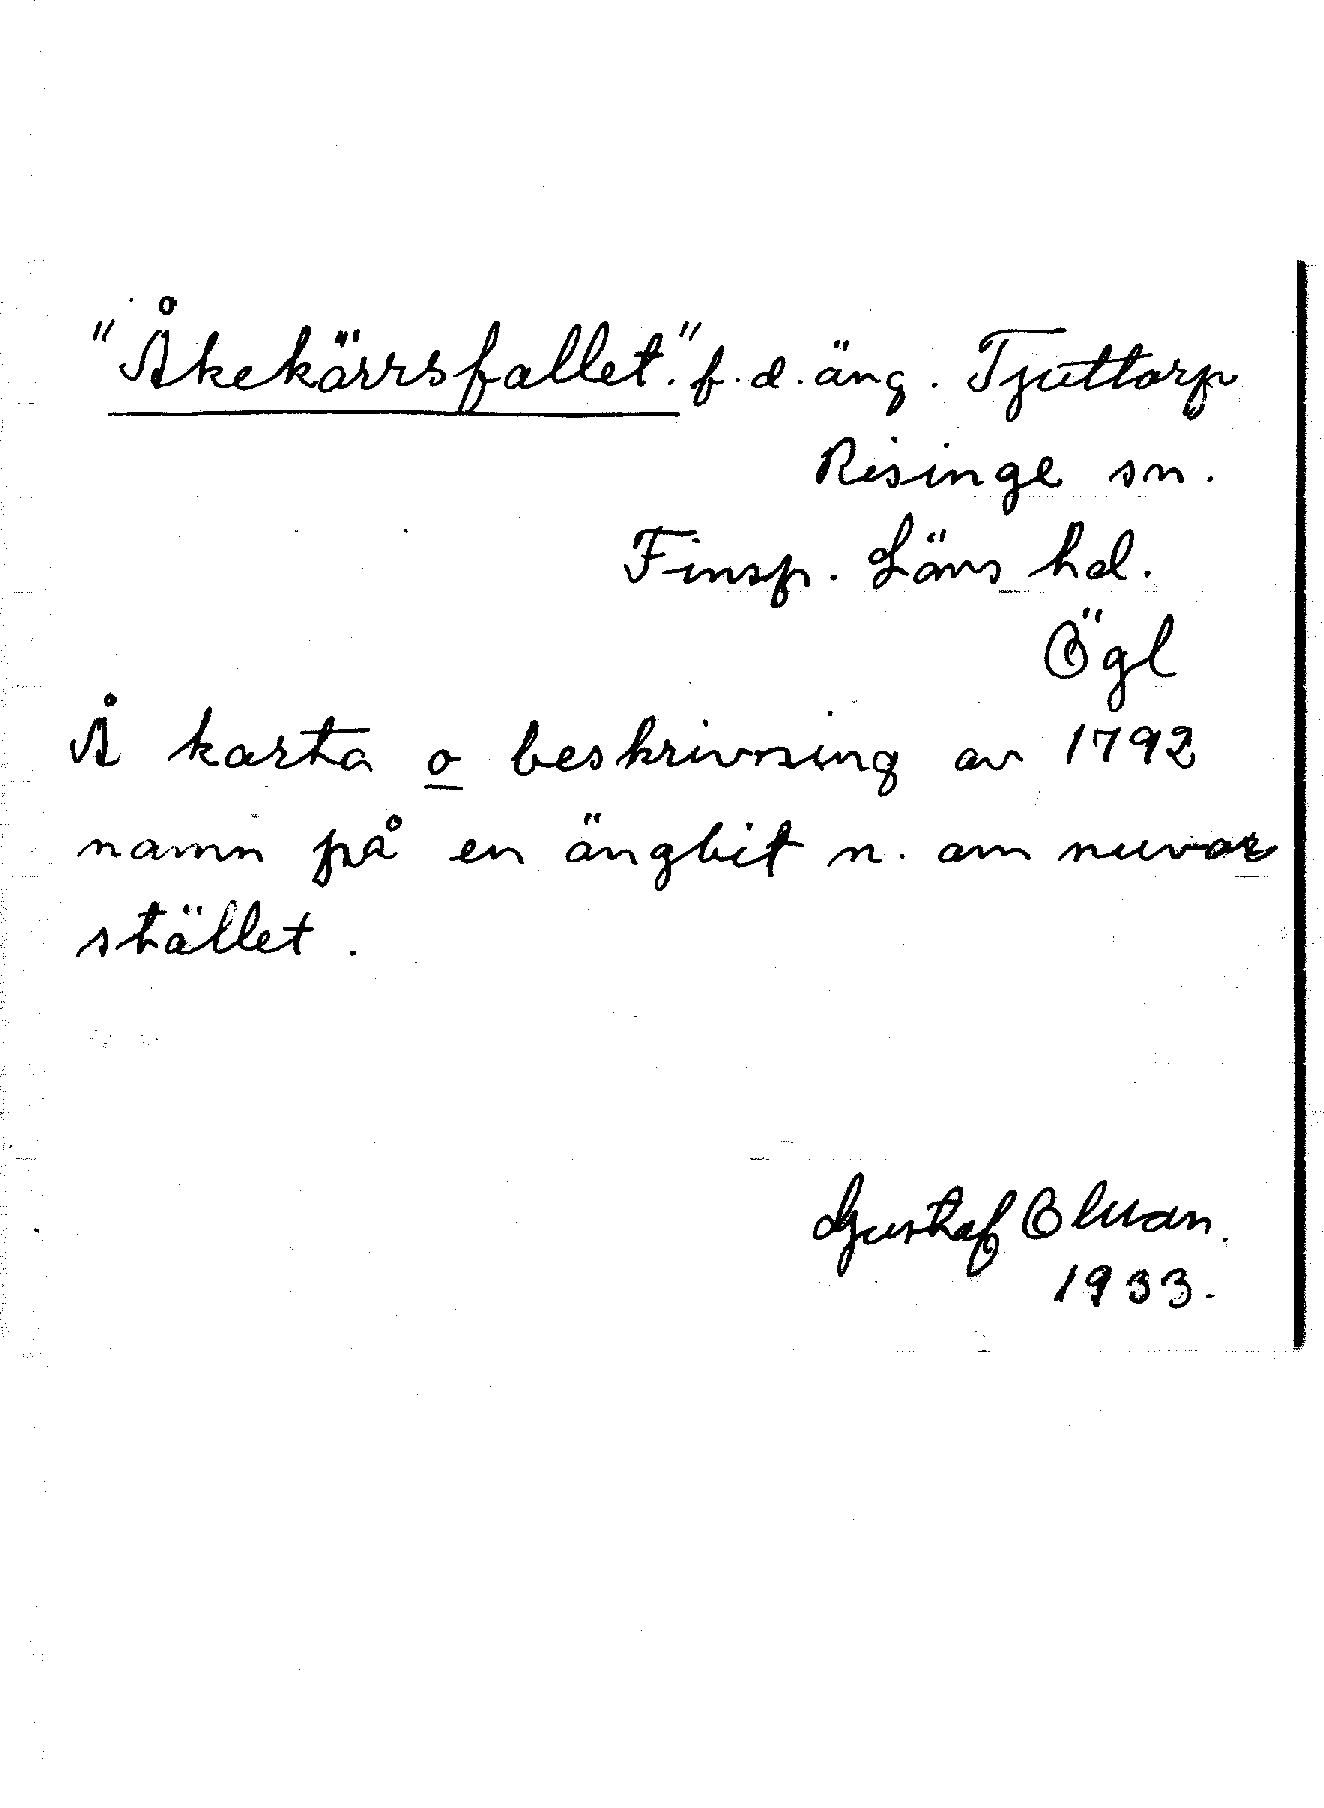 "Åkekärrsfallet." f.d. äng. Tjuttorp
Risinge sn.
Finsp. Läns hd.
Ögl
Å karta o beskrivning av 1792
namn på en ängbit n. om nuvar
stället.
Gustaf
1933.